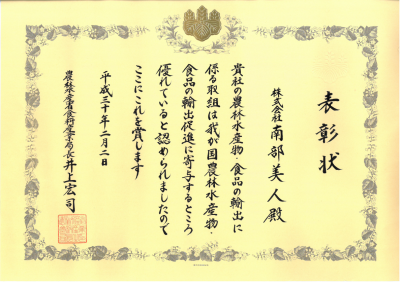 表彰状
株式会社南部美人殿
貴社の農林水産物・食品の輸出に
係る取組は我が国農林水産物・
食品の輸出促進に寄与するところ
優れていると認められましたので
ここにこれを賞します
平成三十年二月二日
農林水産省食料産業局長 井上宏司